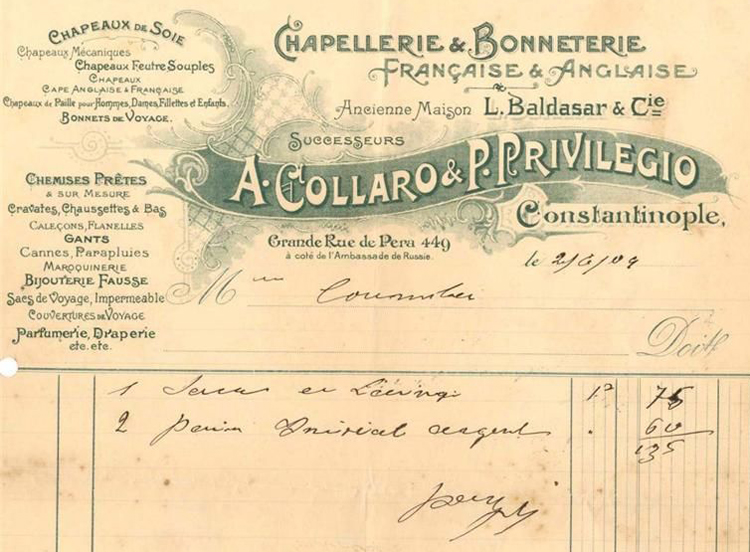 Chapeaux de Soie
Chapeaux Mécaniques
Chapeaux Feutre Souples
Chapeaux
Cape Anglaise & Française
Chapeaux de Paille pour Hommes, Dames, Fillettes et Enfants.
Bonnets de Voyage.
Chemises Prêtes
& sur Mesure
Cravates, Chaussettes & Bas
Caleçons, Flanelles
Gants
Cannes, Parapluies
Maroquinerie
Bijouterie Fausse
Sacs de Voyage, Impermeable
Couvertures de Voyage
Parfumerie, Draperie
etc. etc.
Chapellerie & Bonneterie
Française & Anglaise
Ancienne Maison L. Baldasar & Cie
Successeurs
A. Collaro & P. Privilegio
Constantinople,
Grande Rue de Pera 449
à coté de l'Ambassade de Russie.
le 2/6/09
M
Doit
1 75
2 initial argent 60
135